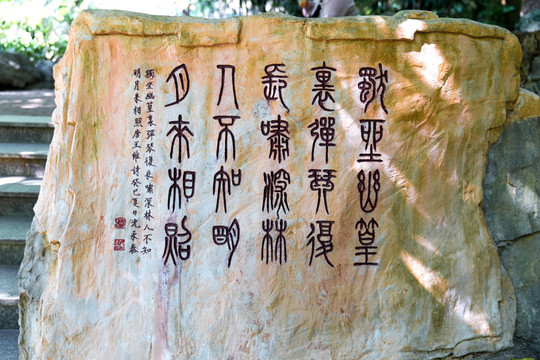 獨坐幽篁
裏彈琴復
長嘯深林
人不知明
月來相照
獨坐幽篁裏彈琴復長嘯深林人不知
明月來相照唐王維詩癸巳夏日沈永泰